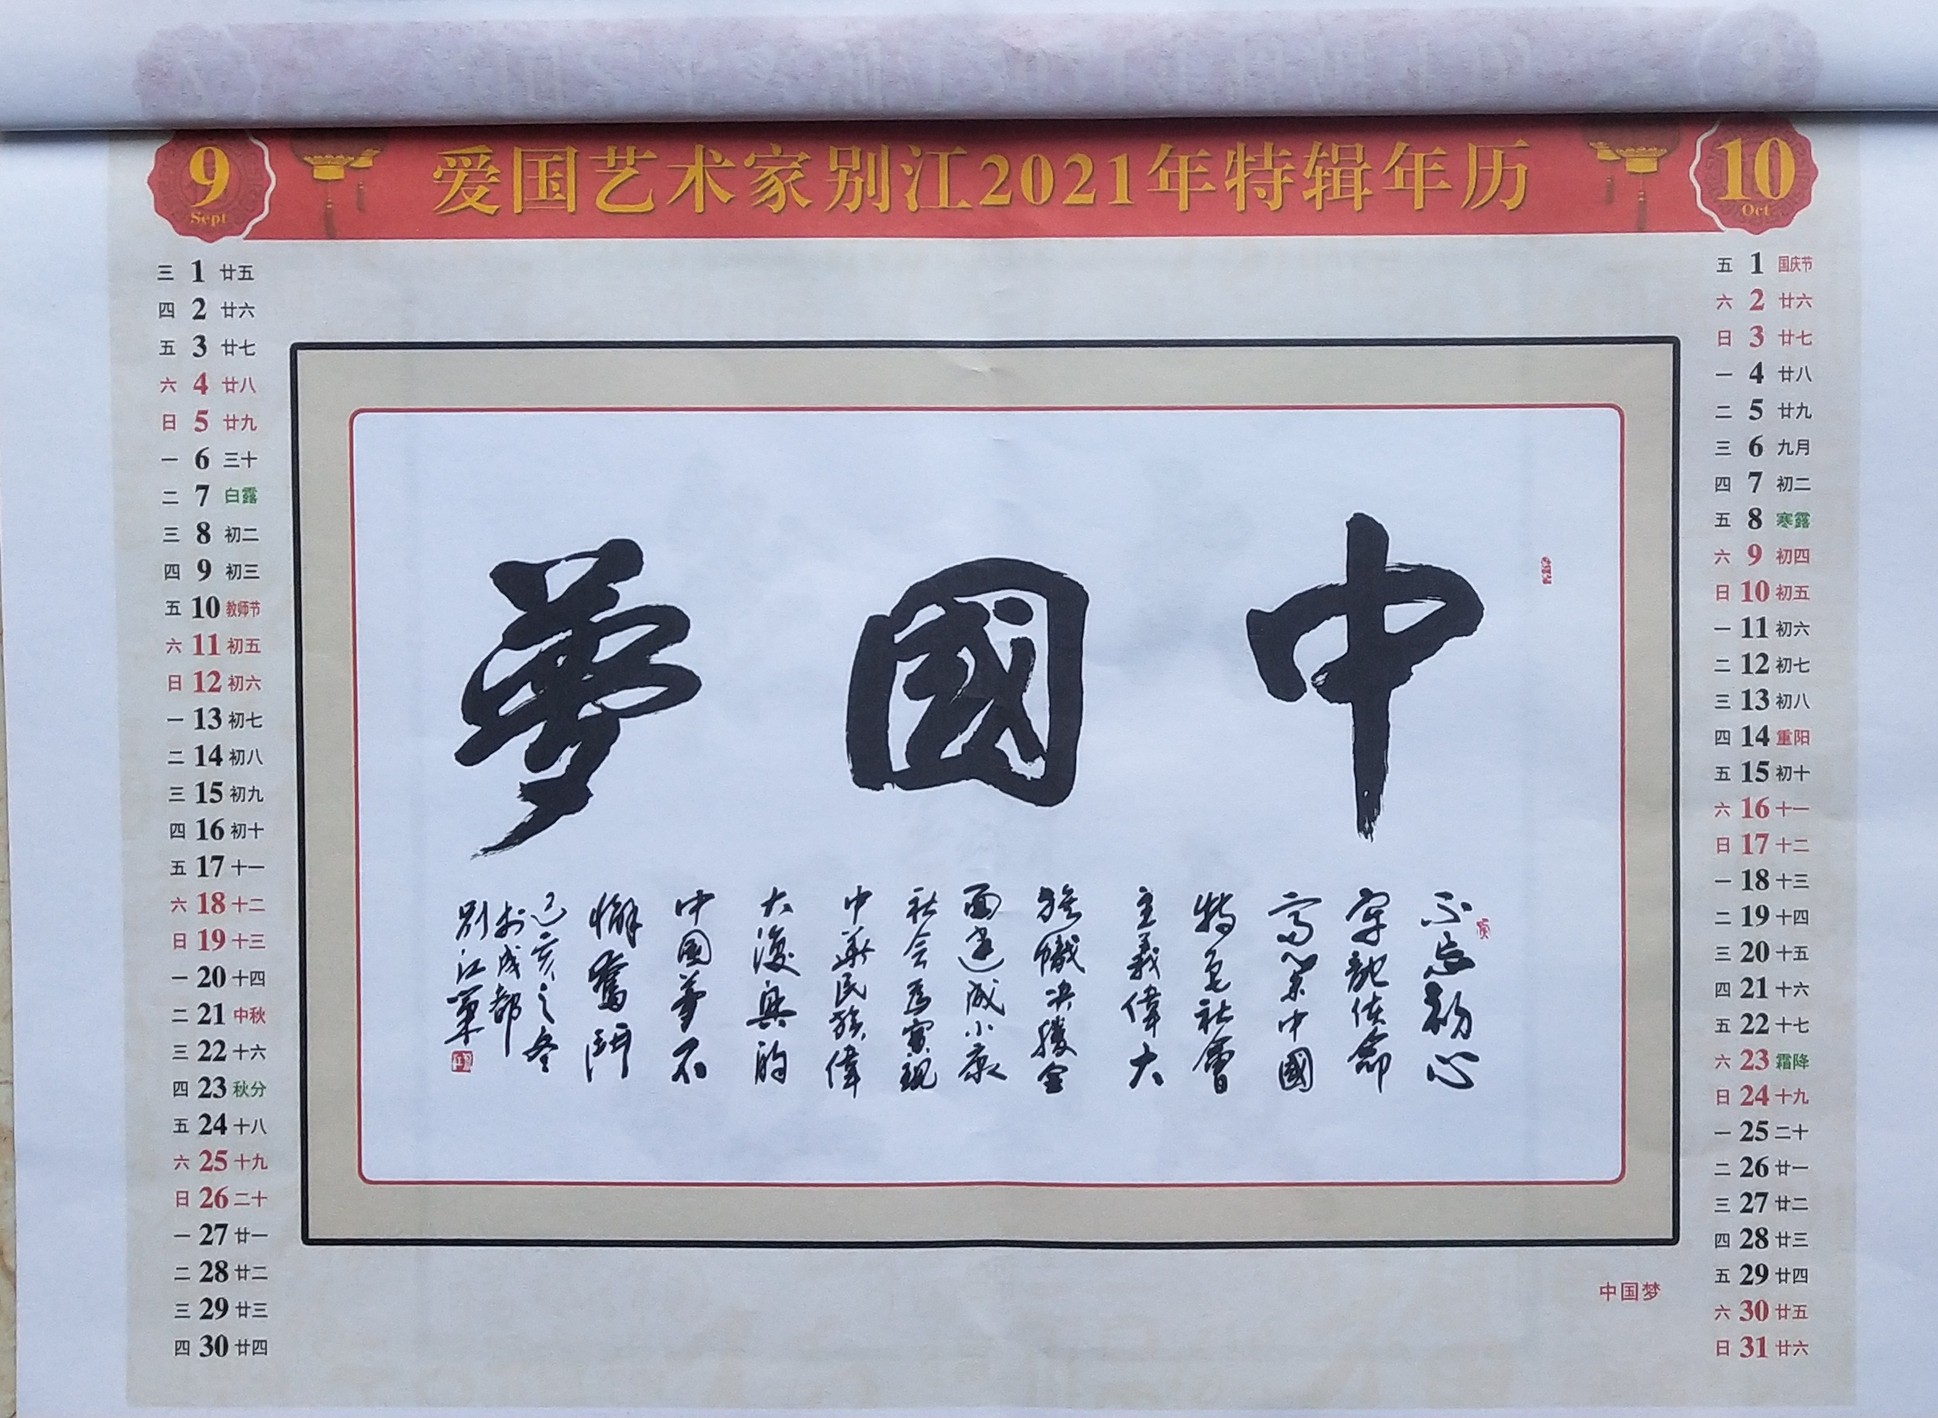 9
Sept
爱国艺术家别江2021年特辑年历
10
Oct
三 1 廿五
四 2 廿六
五 3 廿七
六 4 廿八
日 5 廿九
一 6 三十
二 7 白露
三 8 初二
四 9 初三
五 10 教师节
六 11 初五
日 12 初六
一 13 初七
二 14 初八
三 15 初九
四 16 初十
五 17 十一
六 18 十二
日 19 十三
一 20 十四
二 21 中秋
三 22 十六
四 23 秋分
五 24 十八
六 25 十九
日 26 二十
一 27 廿一
二 28 廿二
三 29 廿三
四 30 廿四
中國夢
不忘初心
牢記使命
高舉中國
特色社會
主義偉大
旗幟决勝全
面建成小康
社会為實現
中華民族偉
大復興的
中国夢不
懈奮鬥
己亥之冬
於成都
別江書
五 1 国庆节
六 2 廿六
日 3 廿七
一 4 廿八
二 5 廿九
三 6 九月
四 7 初二
五 8 寒露
六 9 初四
日 10 初五
一 11 初六
二 12 初七
三 13 初八
四 14 重阳
五 15 初十
六 16 十一
日 17 十二
一 18 十三
二 19 十四
三 20 十五
四 21 十六
五 22 十七
六 23 霜降
日 24 十九
一 25 二十
二 26 廿一
三 27 廿二
四 28 廿三
五 29 廿四
六 30 廿五
日 31 廿六
中国梦